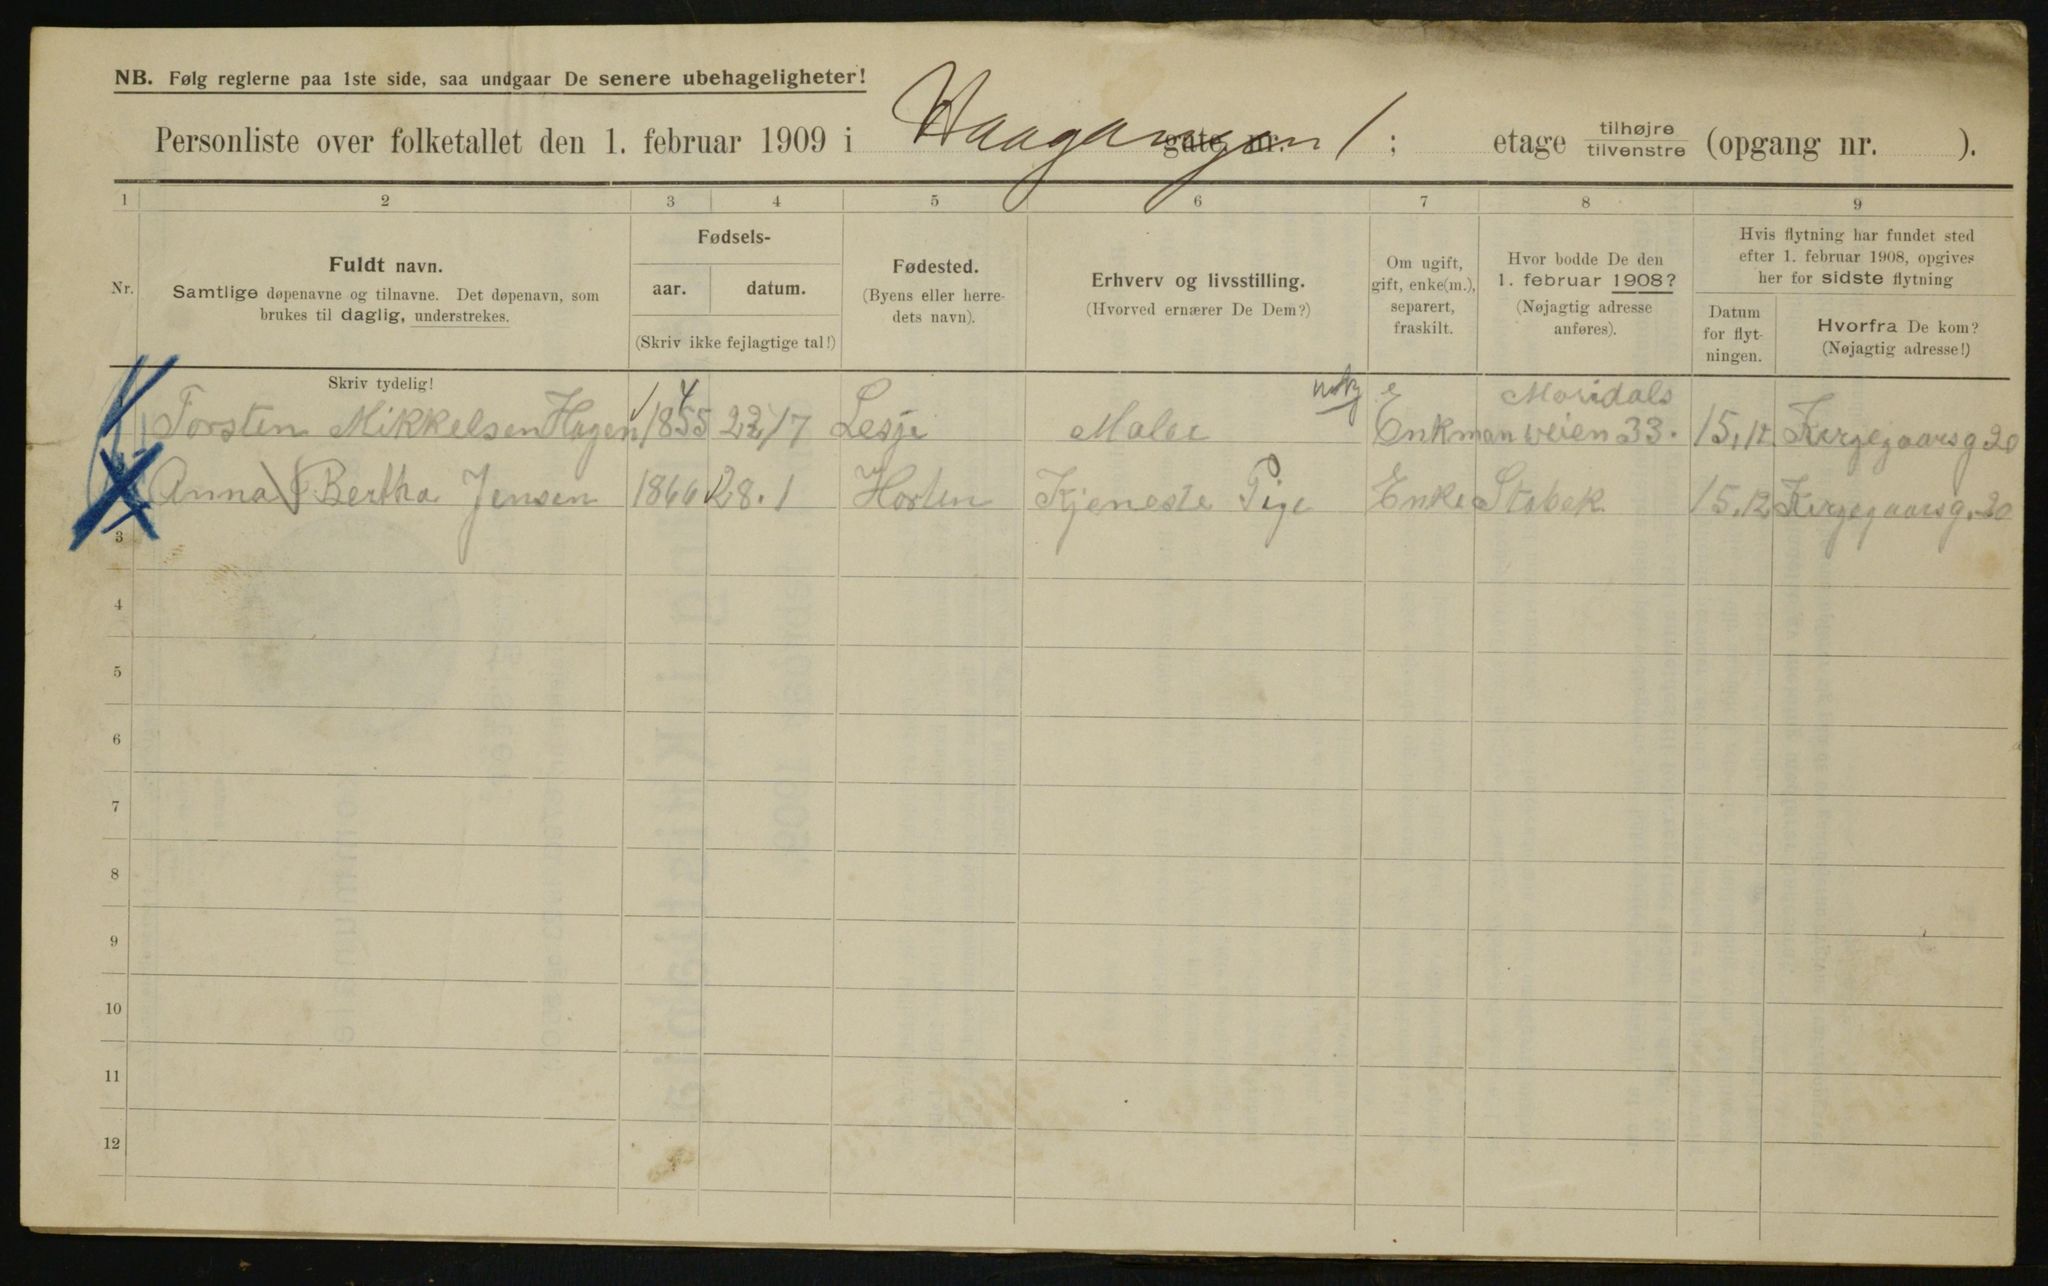 NB. Følg reglerne paa 1ste side, saa undgaar De senere ubehageligheter!
Personliste over folketallet den 1. februar 1909 i Haagangen gate nr. 1 ; etage tilhøjre tilvenstre (opgang nr. ).
1 2 3 4 5 6 7 8 9
Nr.
Fuldt navn.
Samtlige døpenavne og tilnavne. Det døpenavn, som
brukes til daglig, understrekes.
Skriv tydelig!
Fødsels-
aar. datum.
(Skriv ikke fejlagtige tal!)
Fødested.
(Byens eller herre-
dets navn).
Erhverv og livsstilling.
(Hvorved ernærer De Dem?)
Om ugift,
gift, enke(m.),
separert,
fraskilt.
Hvor bodde De den
1. februar 1908?
(Nøjagtig adresse
anføres).
Hvis flytning har fundet sted
efter 1. februar 1908, opgives
her for sidste flytning
Datum
for flyt-
ningen.
Hvorfra De kom?
(Nøjagtig adresse!)
Torsten Mikkelsen Hagen 1855 4 22/7 Lesje Maler e Enkman Maridals veien 33. 15.12 Kirgegaarsg 20
Anna Bertha Jensen 1866 28.1 Horten Tjeneste Pige Enke Stabek 15.12 Kirgegaarsg. 20
3
4
5
6
7
8
9
10
11
12